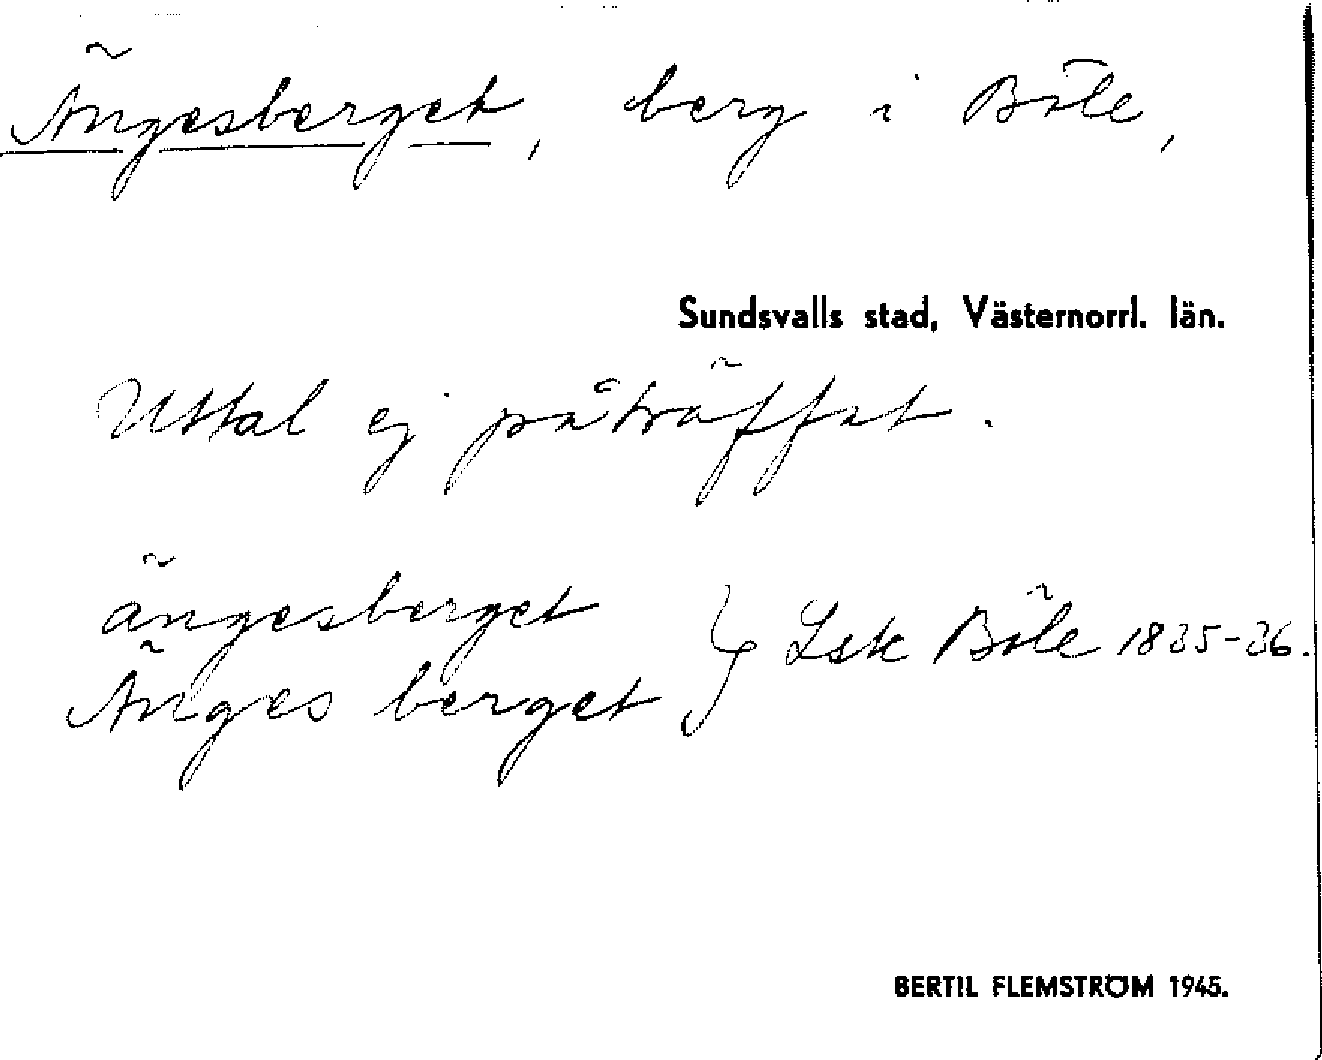 Ängesberget, berg i Böle,
Sundsvalls stad, Västernorrl. län.
Uttal ej påträffat.
ängesberget
Änges berget } Lsk Böle 1835-36.
BERTIL FLEMSTRÖM 1945.